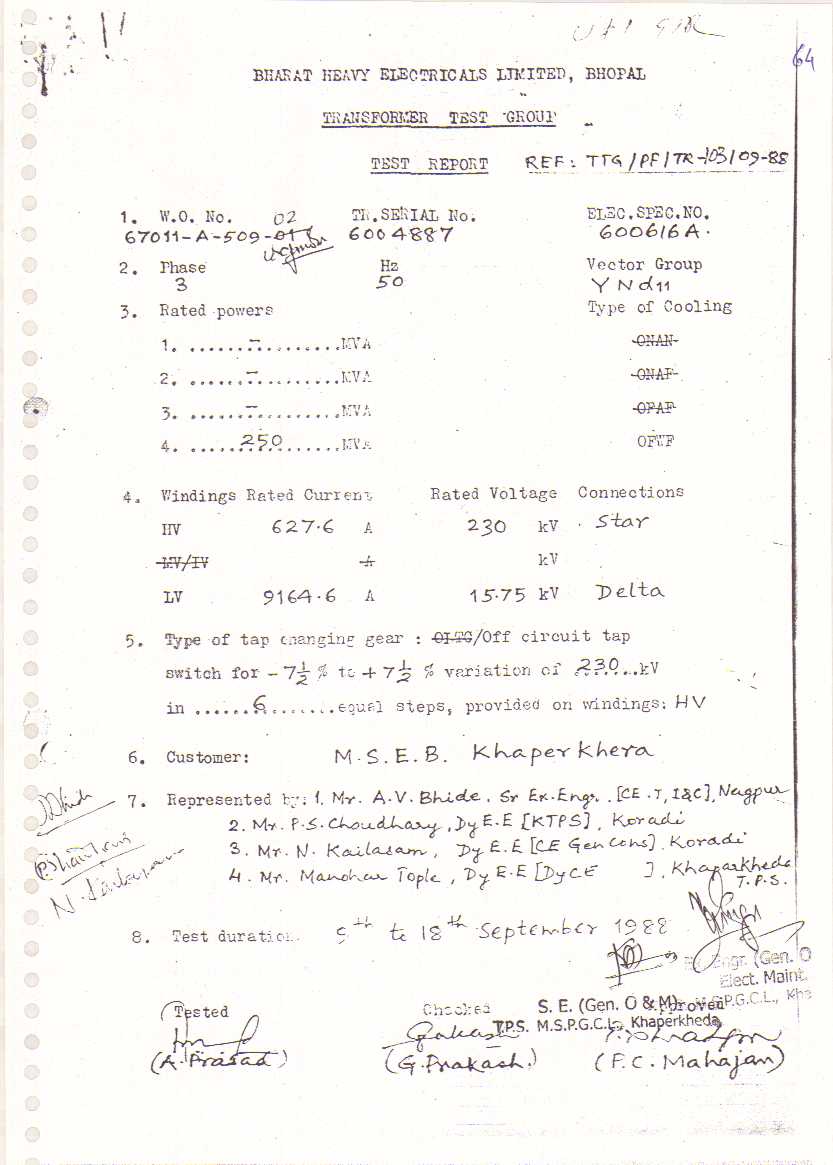 64
BHARAT HEAVY ELECTRICALS LIMITED, BHOPAL
TRANSFORMER TEST GROUP
TEST REPORT REF: TTG/PF/TR-103/09-88
1. W.O. No. 02 TR.SERIAL No. ELEC.SPEC.NO.
67011-A-509-01 6004887 600616A.
2. Phase Hz Vector Group
3 50 YNd11
3. Rated powers Type of Cooling
1. ......–.........MVA ONAN
2. ......–.........MVA ONAF
3. ......–.........MVA OFAF
4. ......250.......MVA OFWF
4. Windings Rated Current Rated Voltage Connections
HV 627.6 A 230 kV Star
MV/IV A kV
LV 9164.6 A 15.75 kV Delta
5. Type of tap changing gear : OLTG/Off circuit tap
switch for - 7½ % to + 7½ % variation of 230...kV
in .......6........equal steps, provided on windings: HV
6. Customer: M.S.E.B. Khaper Khera
7. Represented by: 1. Mr. A.V. Bhide, Sr Ex.Engr. [CE.T, I&C], Nagpur
2. Mr. P.S. Choudhary, Dy E.E [KTPS], Koradi
3. Mr. N. Kailasam, Dy E.E [CE Gen Cons], Koradi
4. Mr. Manohar Tople, Dy E.E [Dy CE ], Khaparkheda
T.P.S.
8. Test duration 9th to 18th September 1988
Engr. (Gen. O
Elect. Maint.
Tested Checked S. E. (Gen. O & M) Approved M.S.P.G.C.L., Kha
T.P.S. M.S.P.G.C.L., Khaperkheda
(A. Prasad) (G. Prakash.) (P.C. Mahajan)